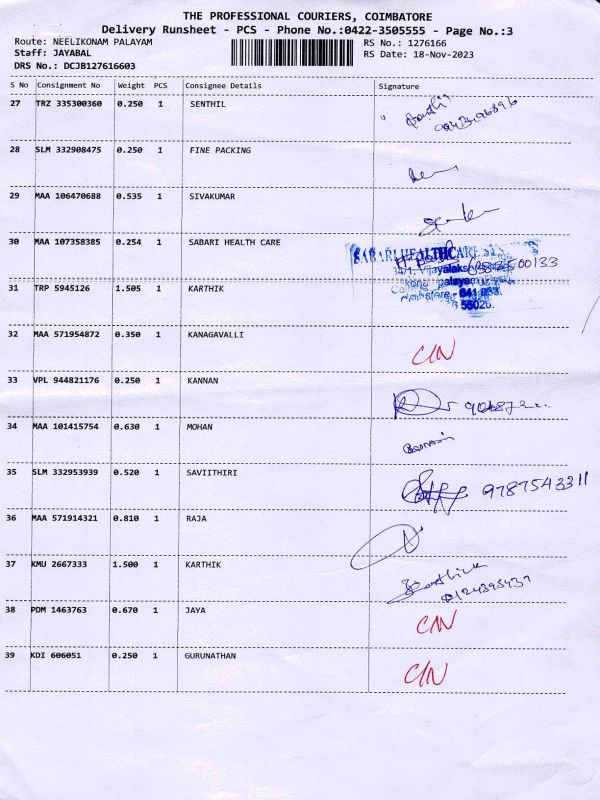 THE PROFESSIONAL COURIERS, COIMBATORE
Delivery Runsheet - PCS - Phone No.:0422-3505555 - Page No.:3
Route: NEELIKONAM PALAYAM RS No.: 1276166
Staff: JAYABAL RS Date: 18-Nov-2023
DRS No.: DCJB127616603
S No Consignment No Weight PCS Consignee Details Signature
27 TRZ 335300360 0.250 1 SENTHIL
28 SLM 332908475 0.250 1 FINE PACKING
29 MAA 106470688 0.535 1 SIVAKUMAR
30 MAA 107358385 0.254 1 SABARI HEALTH CARE
SABARI HEALTHCARE
31 TRP 5945126 1.505 1 KARTHIK
32 MAA 571954872 0.350 1 KANAGAVALLI
33 VPL 944821176 0.250 1 KANNAN
34 MAA 101415754 0.630 1 MOHAN
35 SLM 332953939 0.520 1 SAVIITHIRI 9787543311
36 MAA 571914321 0.810 1 RAJA
37 KMU 2667333 1.500 1 KARTHIK
38 PDM 1463763 0.670 1 JAYA
39 KDI 606051 0.250 1 GURUNATHAN